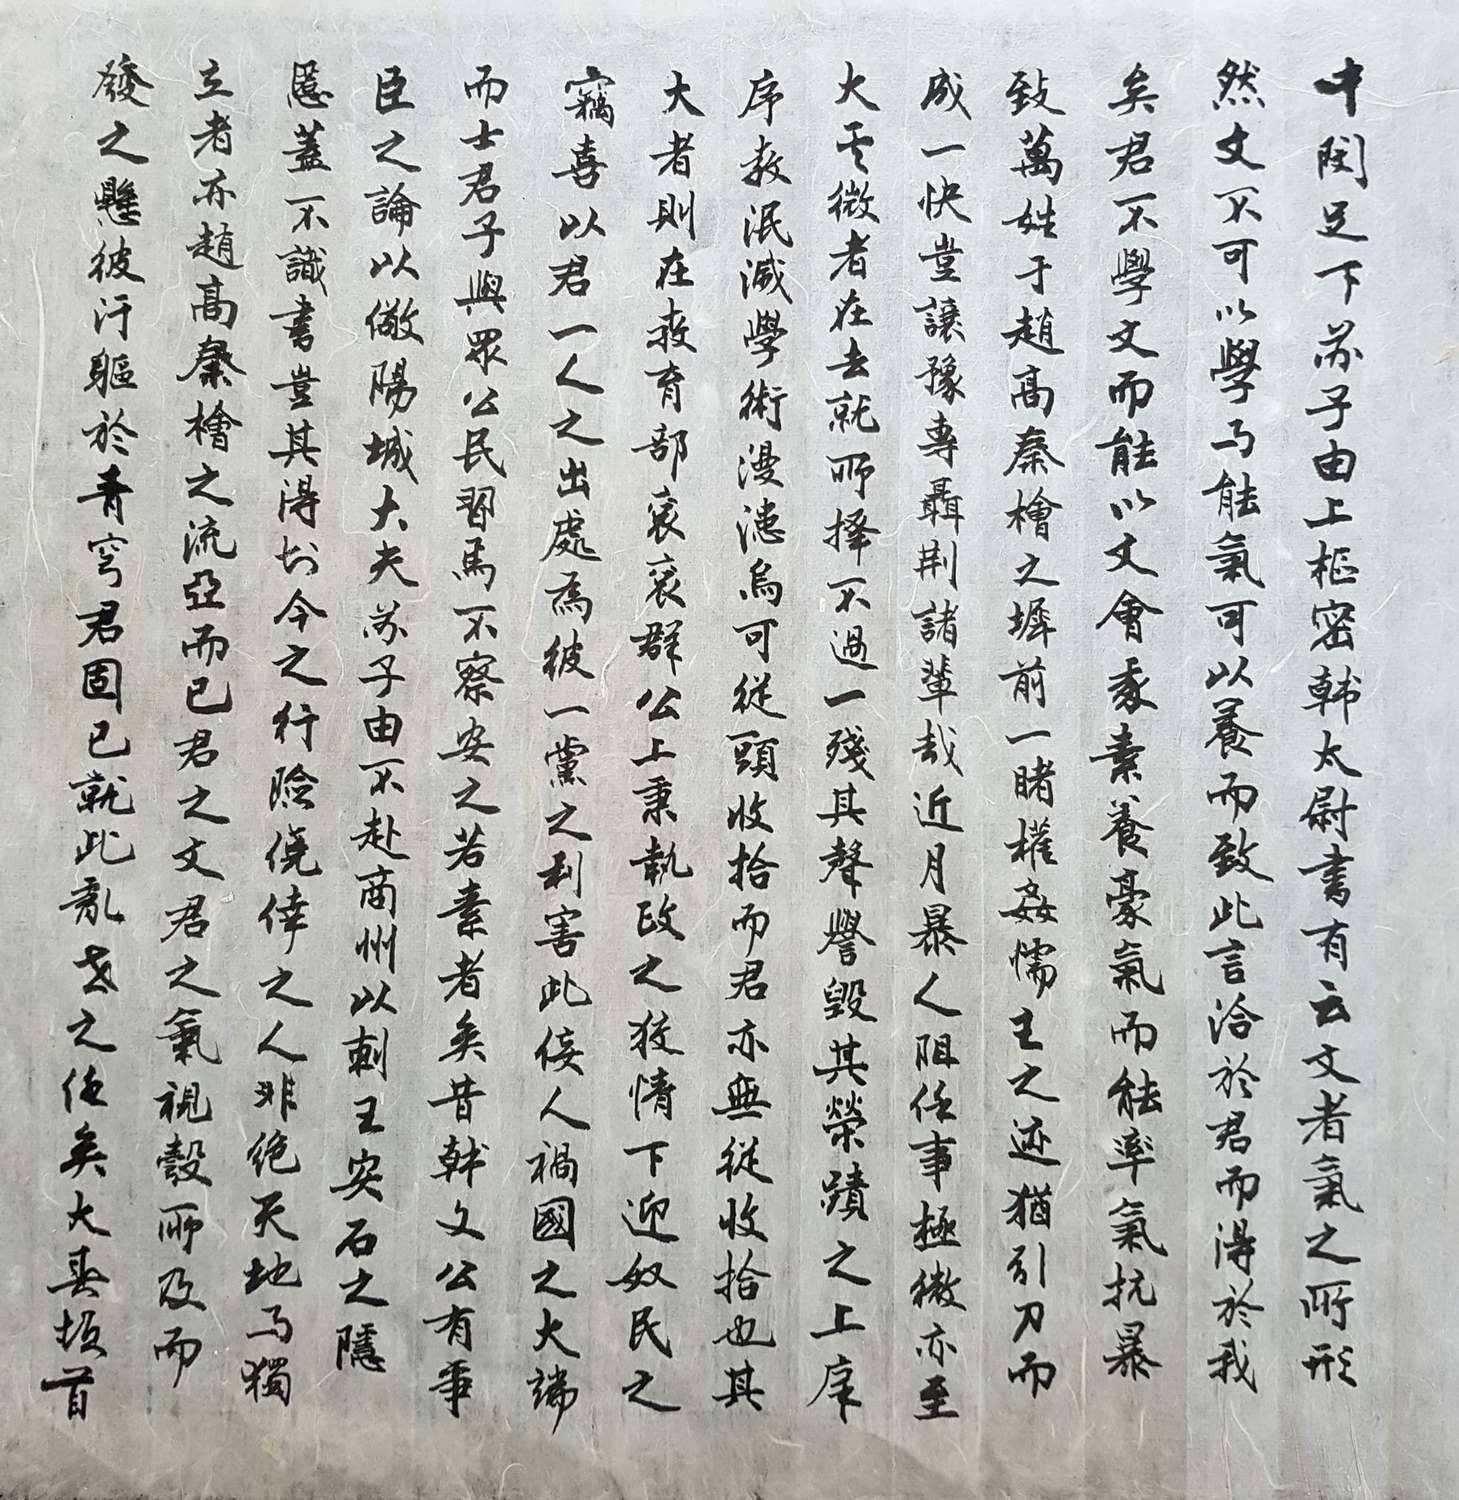 中閔足下蘇子由上樞密韓太尉書有云文者氣之所形
然文不可以學而能氣可以養而致此言洽於君而得於我
矣君不學文而能以文會豪素養豪氣而能率氣抗暴
致萬姓于趙高秦檜之墀前一睹權姦懦主之迹猶引刀而
成一快豈讓豫專聶荆諸輩哉近月暴人阻任事極微亦至
大其微者在去就所擇不過一殘其聲譽毀其榮蹟之上庠
序教泯滅學術漫漶烏可從頭收拾而君亦無從收拾也其
大者則在教育部袞袞群公上秉執政之狡情下迎奴民之
竊喜以君一人之出處為彼一黨之利害此佞人禍國之大端
而士君子與眾公民習焉不察安之若素者矣昔韓文公有事
臣之論以儆陽城大夫蘇子由不赴商州以刺王安石之隱
慝蓋不識書豈其得於今之行險僥倖之人非絕天地焉獨
立者亦趙高秦檜之流亞而已君之文君之氣視彀所及而
發之懸彼汙軀於青穹君固已就此亂世之任矣大春頓首